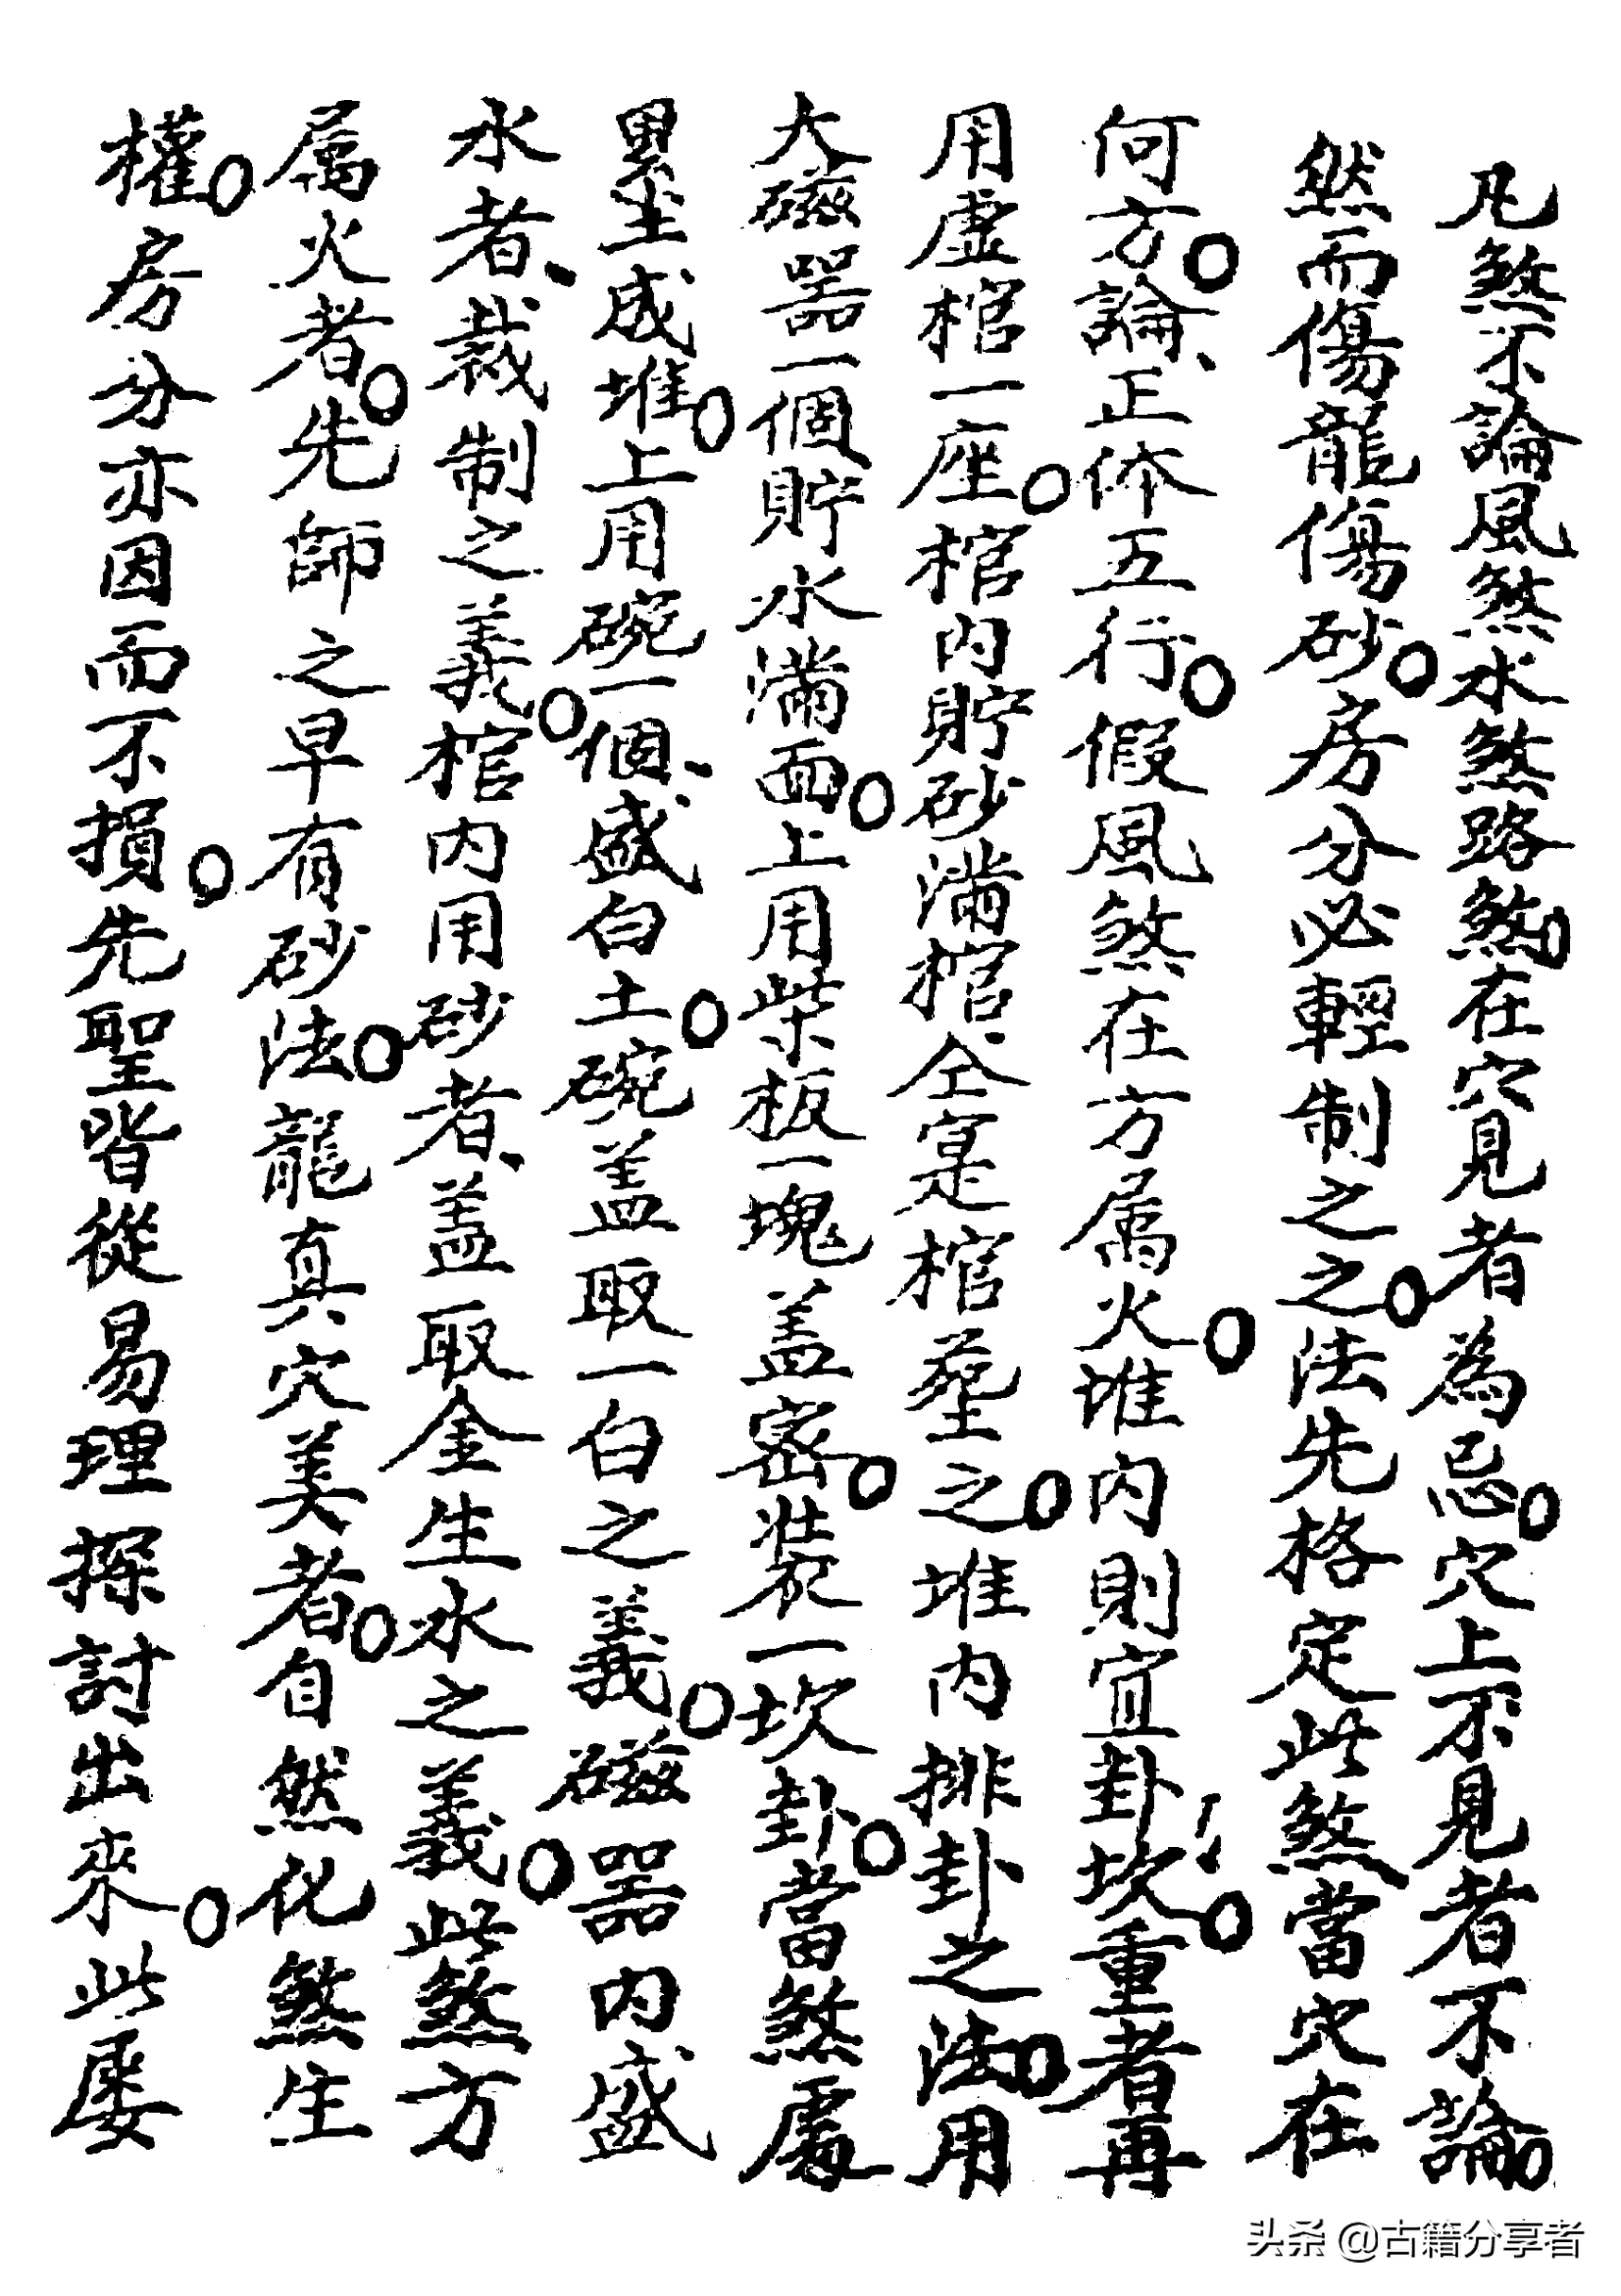 凡煞不論風煞水煞路煞。在穴見者為忌。穴上不見者不論。
然而傷龍傷砂。房分必輕制之之。法先格定此煞當穴在
何方。論、正体五行。假風煞在方属火。堆内則宜卦坎。重者再
用虛棺一座。棺内貯砂滿棺、仝寔棺塟之。堆内排卦之法。用
大磁器一個貯水滿面。上用柴板一塊盖密。裝一坎卦。當煞處
累土成堆。上用碗一個、盛白土。碗盖取一白之義。磁器内盛
水者、裁制之義。棺内用砂者、盖取金生水之義。此煞方
属火者。先師之早有砂法。龍真穴美者。自然化煞生
權。房分亦因而不損。先聖皆從易理探討出來。此屡
头条 @古籍分享者